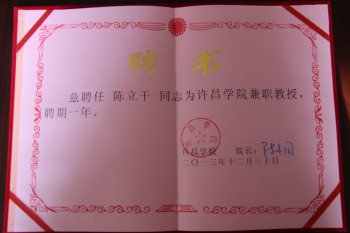 聘书
兹聘任 陈立干 同志为许昌学院兼职教授，
聘期一年。
许昌学院 院长：
二〇一三年十二月三十日